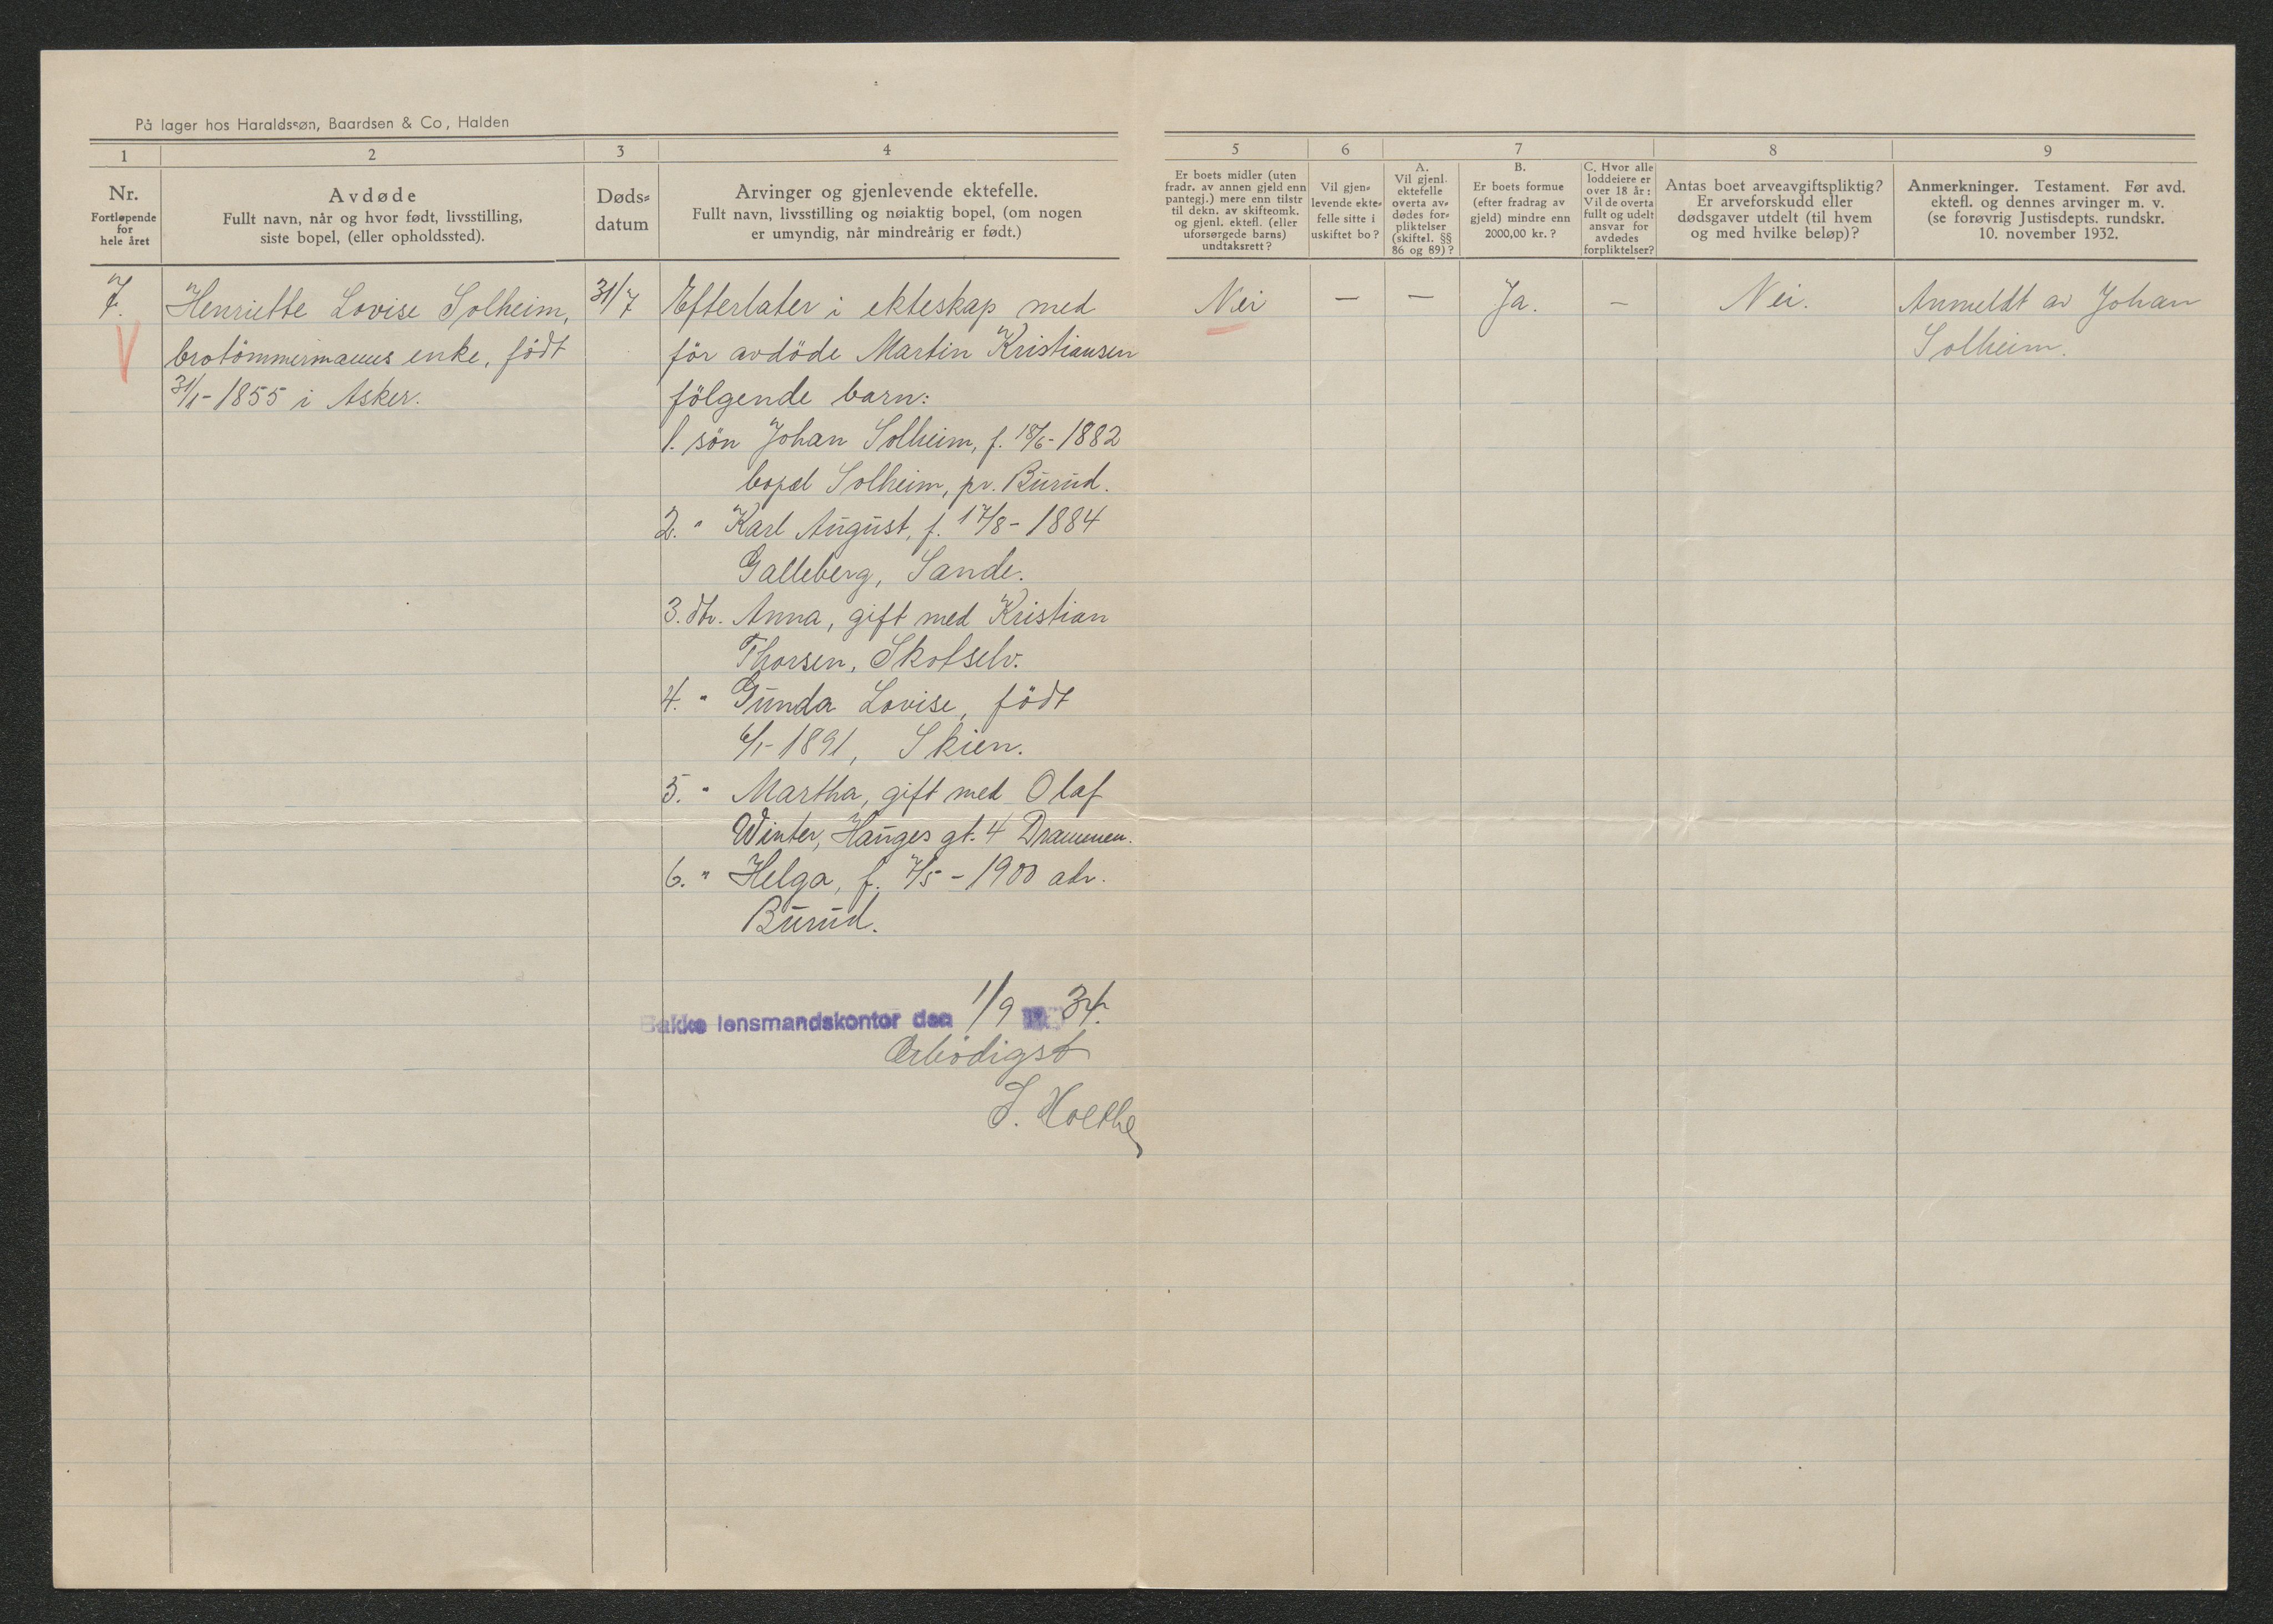 På lager hos Haraldssøn, Baardsen & Co, Halden
1
2
3
4
5
6
7
8
9
Nr.
Fortløpende
for
hele året
Avdøde
Fullt navn, når og hvor født, livsstilling,
siste bopel, (eller opholdssted).
Døds-
datum
Arvinger og gjenlevende ektefelle.
Fullt navn, livsstilling og nøiaktig bopel, (om nogen
er umyndig, når mindreårig er født.)
Er boets midler (uten
fradr. av annen gjeld enn
pantegj.) mere enn tilstr
til dekn. av skifteomk.
og gjenl. ektefl. (eller
uforsørgede barns)
undtaksrett?
Vil gjen-
levende ekte-
felle sitte i
uskiftet bo?
A.
Vil gjenl.
ektefelle
overta av-
dødes for-
pliktelser
(skiftel. §§
86 og 89)?
B.
Er boets formue
(efter fradrag av
gjeld) mindre enn
2000,00 kr.?
C. Hvor alle
loddeiere er
over 18 år:
Vil de overta
fullt og udelt
ansvar for
avdødes
forpliktelser?
Antas boet arveavgiftspliktig?
Er arveforskudd eller
dødsgaver utdelt (til hvem
og med hvilke beløp)?
Anmerkninger. Testament. Før avd.
ektefl. og dennes arvinger m. v.
(se forøvrig Justisdepts. rundskr.
10. november 1932.
7.
V
Henriette Lovise Solheim,
brotömmermanns enke, födt
31/1-1855 i Asker.
31/7
Efterlater i ekteskap med
för avdöde Martin Kristiansen
fölgende barn:
1. sön Johan Solheim, f. 18/6-1882
bopæl Solheim, pr. Burud.
2. " Karl August, f. 17/8-1884
Galleberg, Sande.
3. dtr. Anna, gift med Kristian
Thorsen, Skotselv.
4. " Gunda Lovise, födt
6/1-1891, Skien.
5. " Martha, gift med Olaf
Winter, Hauges gt. 4 Drammen.
6. " Helga, f. 7/5-1900 adr.
Burud.
Nei
—
—
Ja.
—
Nei.
Anmeldt av Johan
Solheim.
Bakke lensmandskontor den 1/9 19 34.
Ærbödigst
S. Holthe